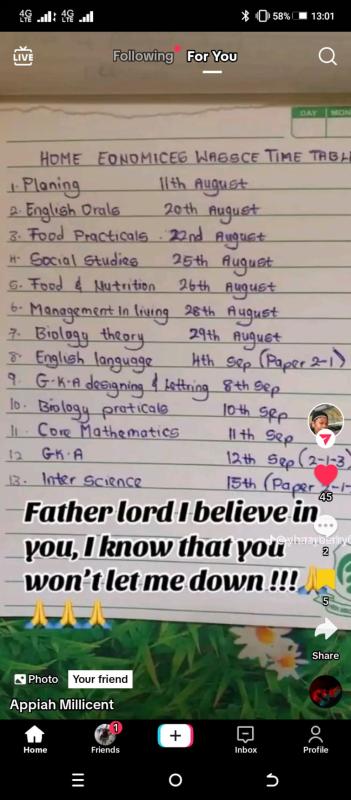 4G LTE 4G LTE 58% 13:01
LIVE Following For You
DAY MON
HOME EONOMICES WASSCE TIME TABL
1. Planing 11th August
2. English Orals 20th August
3. Food Practicals . 22nd August
4. Social Studies 25th August
5. Food & Nutrition 26th August
6. Management In living 28th August
7. Biology theory 29th August
8. English language 4th Sep (Paper 2-1)
9. G.K.A designing & Lettring 8th Sep
10. Biology praticals 10th Sep
11. Core Mathematics 11th Sep
12 GK.A 12th Sep (2-1-3)
13. Inter Science 15th (Paper 2-1-
45
Father lord I believe in
you, I know that you
won't let me down !!! 🙏
🙏🙏🙏
2
5
Share
Photo Your friend
Appiah Millicent
1
Home Friends Inbox Profile